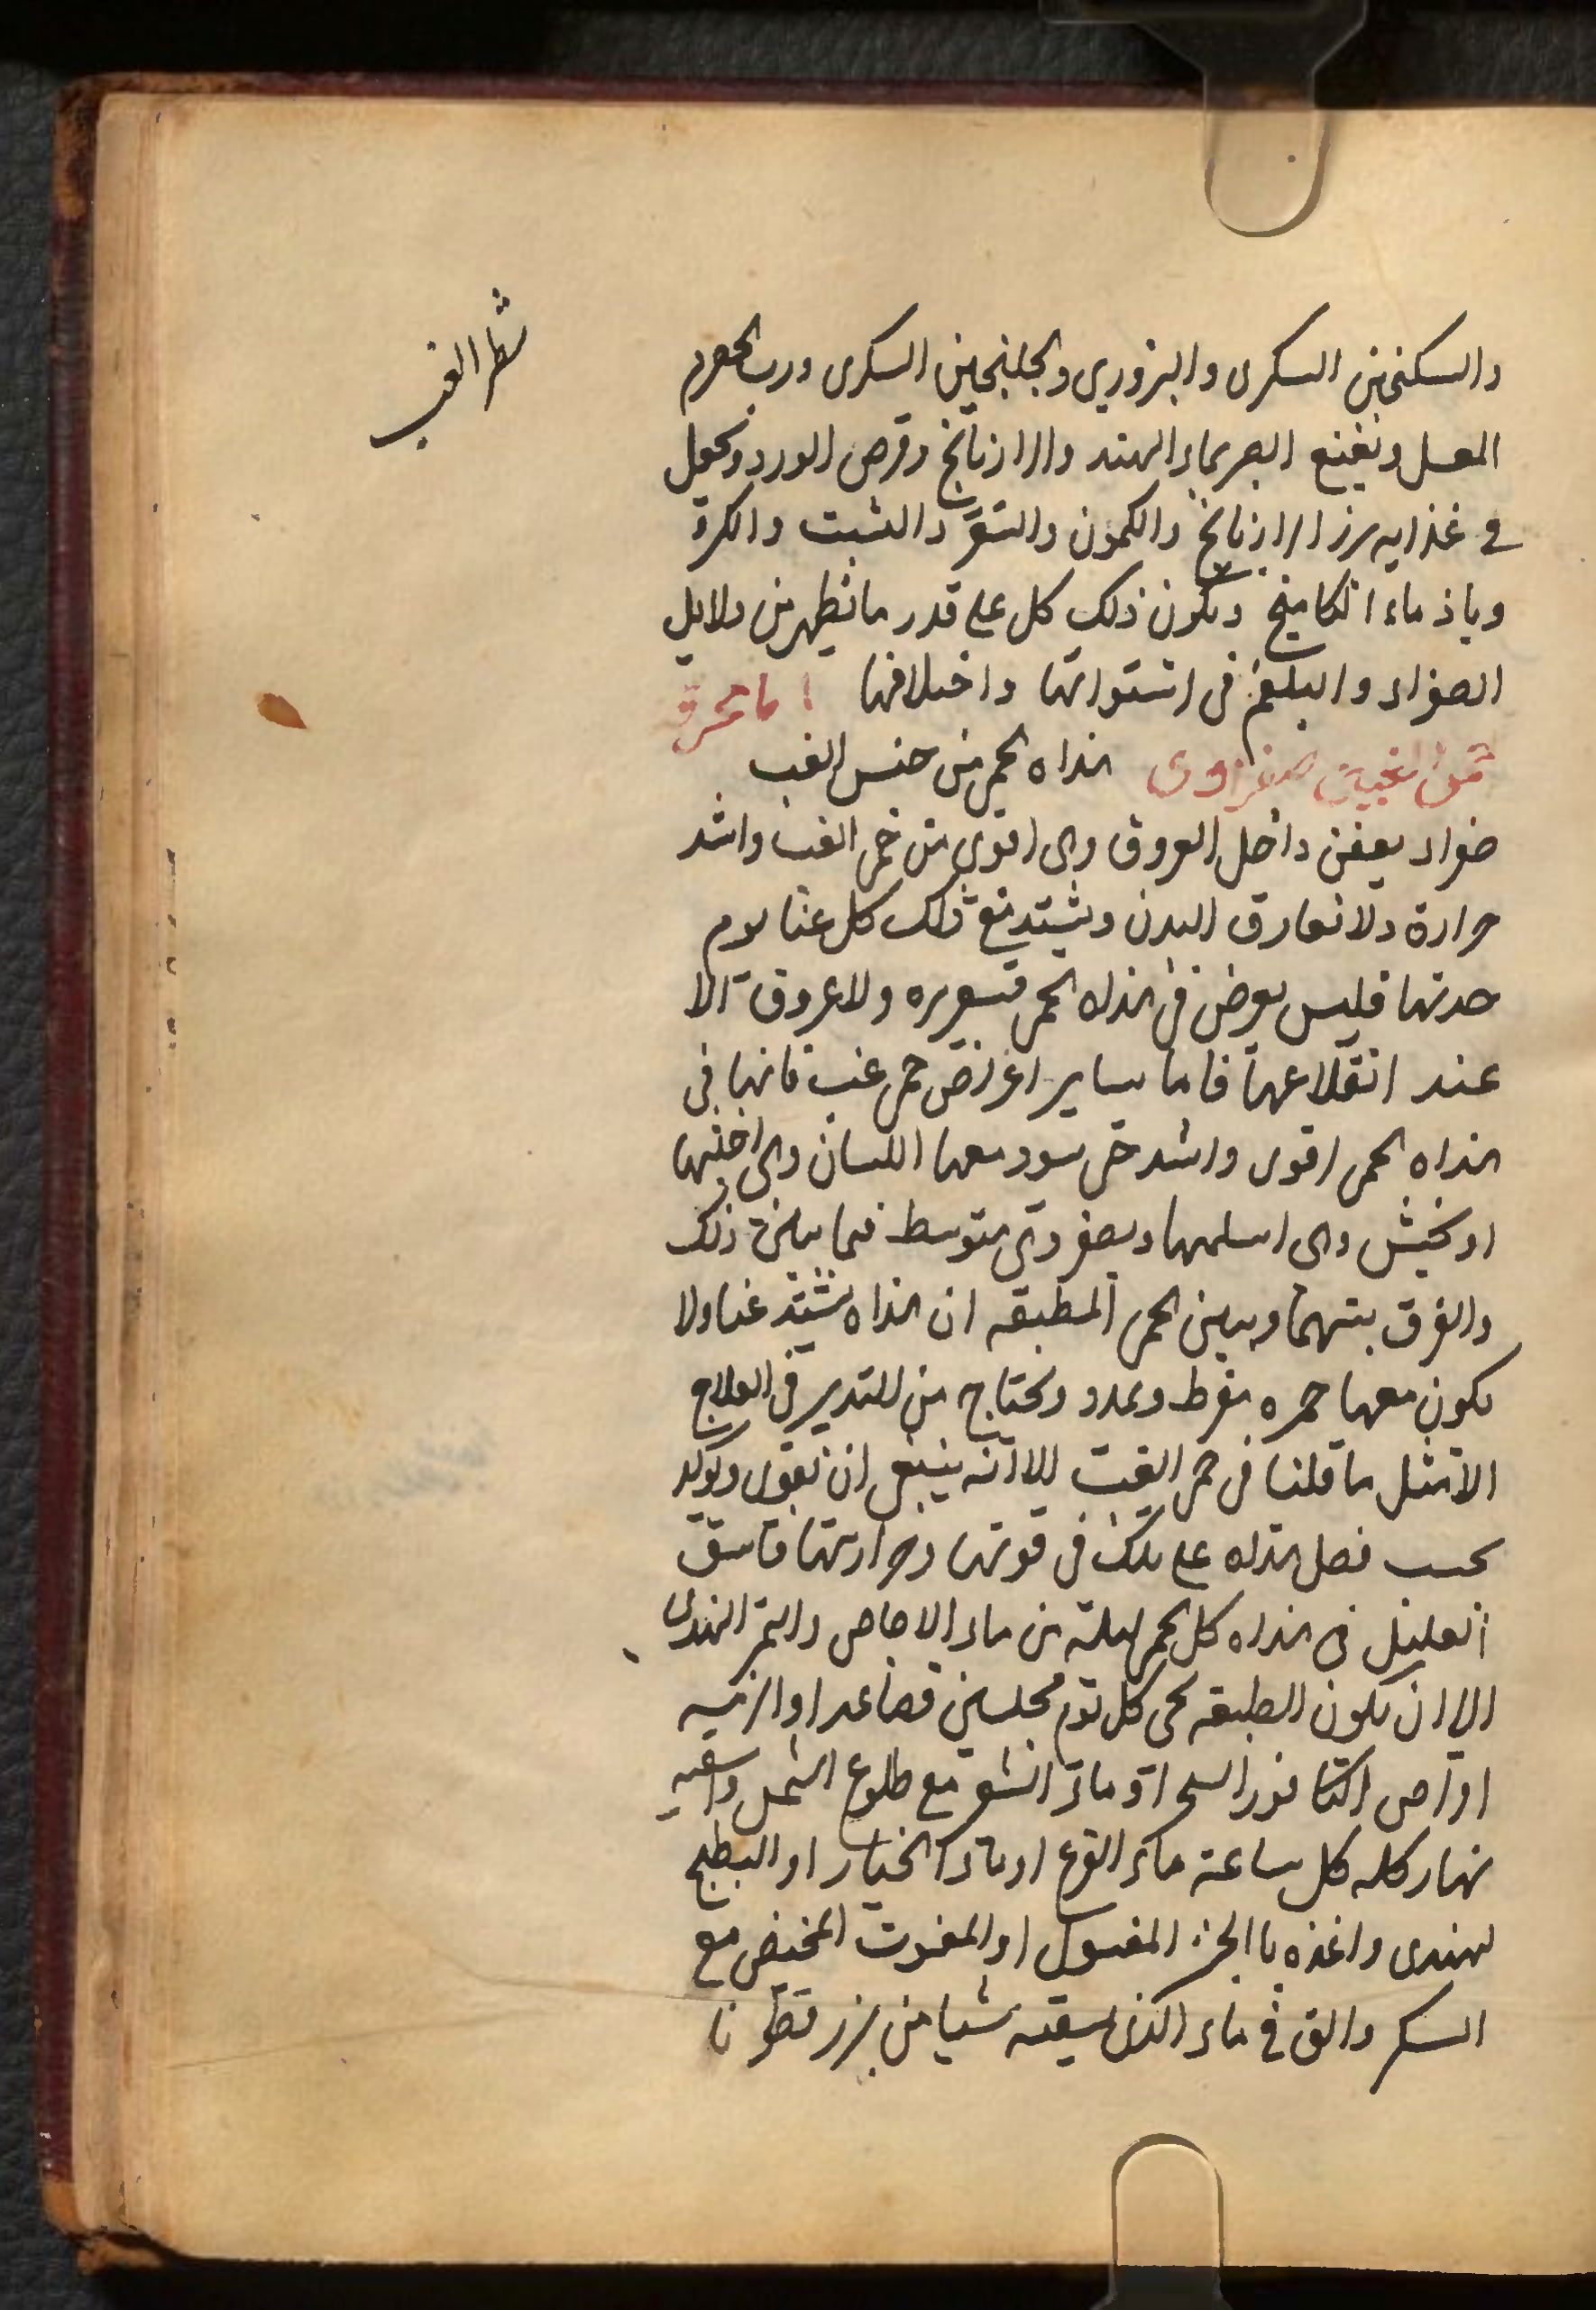 شطر الغب
والسكنجبين السكرى والبزوري والجلنجبين السكرى ورب الحصرم
العسل ونفيع الصبر بماء الهند والرازيانج وقرص الورد ويجعل
في غذايه بزر الرازيانج والكمون والشبت والكرة
وياذ ماء الكامخ ويكون ذلك كل على قدر ما يظهر من دلايل
الصفراء والبلغم فى استوائها واختلافها اما محرقة
صفراوى هذاه الحمى من جنس الغب
صفراء يعفن داخل العروق وهى اقوى من حمى الغب واشد
حرارة ولا تفارق البدن ويشتد مع ذلك كل غبا يوم
حدتها فليس يعرض فى هذاه الحمى قشعريره ولا عروق الا
عند انقلاعها فاما ساير اعراض حمى غب فانها فى
هذاه الحمى اقوى واشد حتى يسود معها اللسان وهى اخبثها
او يخشن وهى اسلمها ويصفر وهى متوسط فيما بين ذلك
والفرق بينهما وبين الحمى المطبقه ان هذاه يشتد غبا ولا
يكون معها حمره مفرط وتمدد ويحتاج من التدبير فى العلاج
الا مثل ما قلنا فى حمى الغب الا انه ينبغى ان يقوى ويوكد
بحسب فضل هذاه على تلك فى قوتها وحرارتها فاسق
العليل فى هذاه كل الحمى ليلة من ماء الاجاص والتمر الهندى
الا ان يكون الطبيعه يجى كل يوم مجلسين فصاعدا والزمه
اقراص الكافور السحر او ماء الشعير مع طلوع الشمس واسقيه
نهار كله كل ساعة ماء القرع او ماء الخيار او البطيخ
لهندى واغذه با الخبز المغسول او المفتوت المخيض مع
السكر والق في ماء الذى يسقيه شيا من بزر قطونا